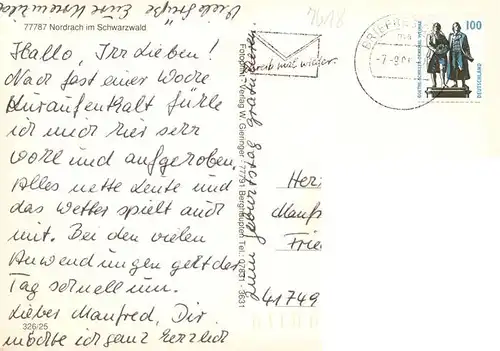 Viele Grüße Eure
77787 Nordrach im Schwarzwald
Hallo, Ihr Lieben!
Nach fast einer Woche
Kuraufenthalt fühle
ich mich hier sehr
wohl und aufgehoben.
Alles nette Leute und
das Wetter spielt auch
mit. Bei den vielen
Anwendungen geht der
Tag schnell um.
Lieber Manfred, Dir
möchte ich ganz herzlich
zum Geburtstag gratulieren.
326/25
Fotogr. - Verlag W. Gieringer · 77791 Berghaupten Tel.: 07831 - 3631
1618
Schreib mal wieder.
BRIEFZ
100
DEUTSCHLAND
Her
Manf
Frie
41749